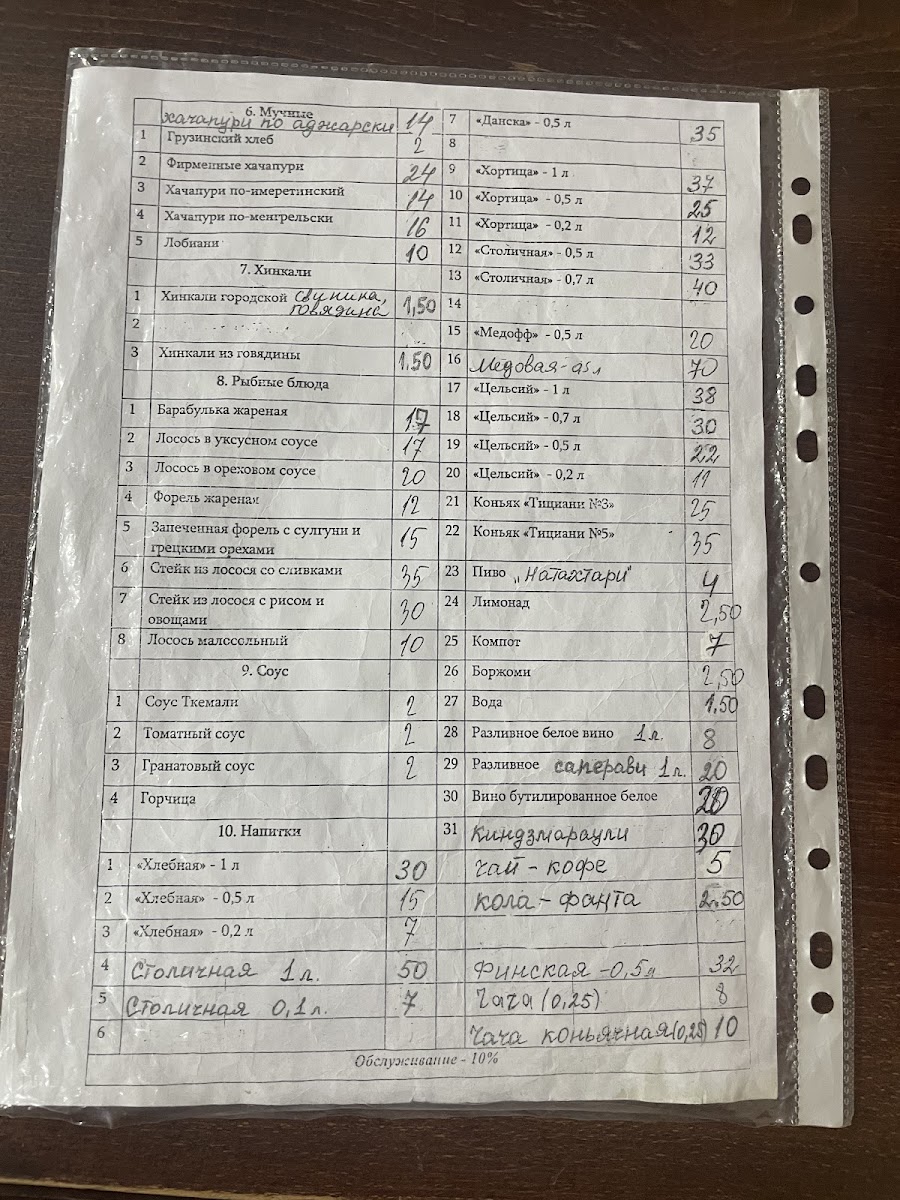 6. Мучные
хачапури по аджарски 14
1 Грузинский хлеб 2
2 Фирменные хачапури 24
3 Хачапури по-имеретинский 14
4 Хачапури по-менгрельски 16
5 Лобиани 10
7. Хинкали
1 Хинкали городской свинина, 1,50
говядина
2
3 Хинкали из говядины 1.50
8. Рыбные блюда
1 Барабулька жареная 17
2 Лосось в уксусном соусе 17
3 Лосось в ореховом соусе 20
4 Форель жареная 12
5 Запеченная форель с сулгуни и 15
грецкими орехами
6 Стейк из лосося со сливками 35
7 Стейк из лосося с рисом и 30
овощами
8 Лосось малосольный 10
9. Соус
1 Соус Ткемали 2
2 Томатный соус 2
3 Гранатовый соус 2
4 Горчица
10. Напитки
1 «Хлебная» - 1 л 30
2 «Хлебная» - 0,5 л 15
3 «Хлебная» - 0,2 л 7
4 Столичная 1 л. 50
5 Столичная 0,1 л. 7
6
7 «Данска» - 0,5 л 35
8
9 «Хортица» - 1 л 37
10 «Хортица» - 0,5 л 25
11 «Хортица» - 0,2 л 12
12 «Столичная» - 0,5 л 33
13 «Столичная» - 0,7 л 40
14
15 «Медофф» - 0,5 л 20
16 Медовая - 0,5 л 70
17 «Цельсий» - 1 л 38
18 «Цельсий» - 0,7 л 30
19 «Цельсий» - 0,5 л 22
20 «Цельсий» - 0,2 л 11
21 Коньяк «Тициани №3» 25
22 Коньяк «Тициани №5» 35
23 Пиво „Натахтари" 4
24 Лимонад 2,50
25 Компот 7
26 Боржоми 2,50
27 Вода 1.50
28 Разливное белое вино 1 л. 8
29 Разливное саперави 1 л. 20
30 Вино бутилированное белое 20
31 Киндзмараули 30
чай - кофе 5
кола - фанта 2.50
Финская - 0,5 л 32
Чача (0,25) 8
Чача коньячная (0,25) 10
Обслуживание - 10%